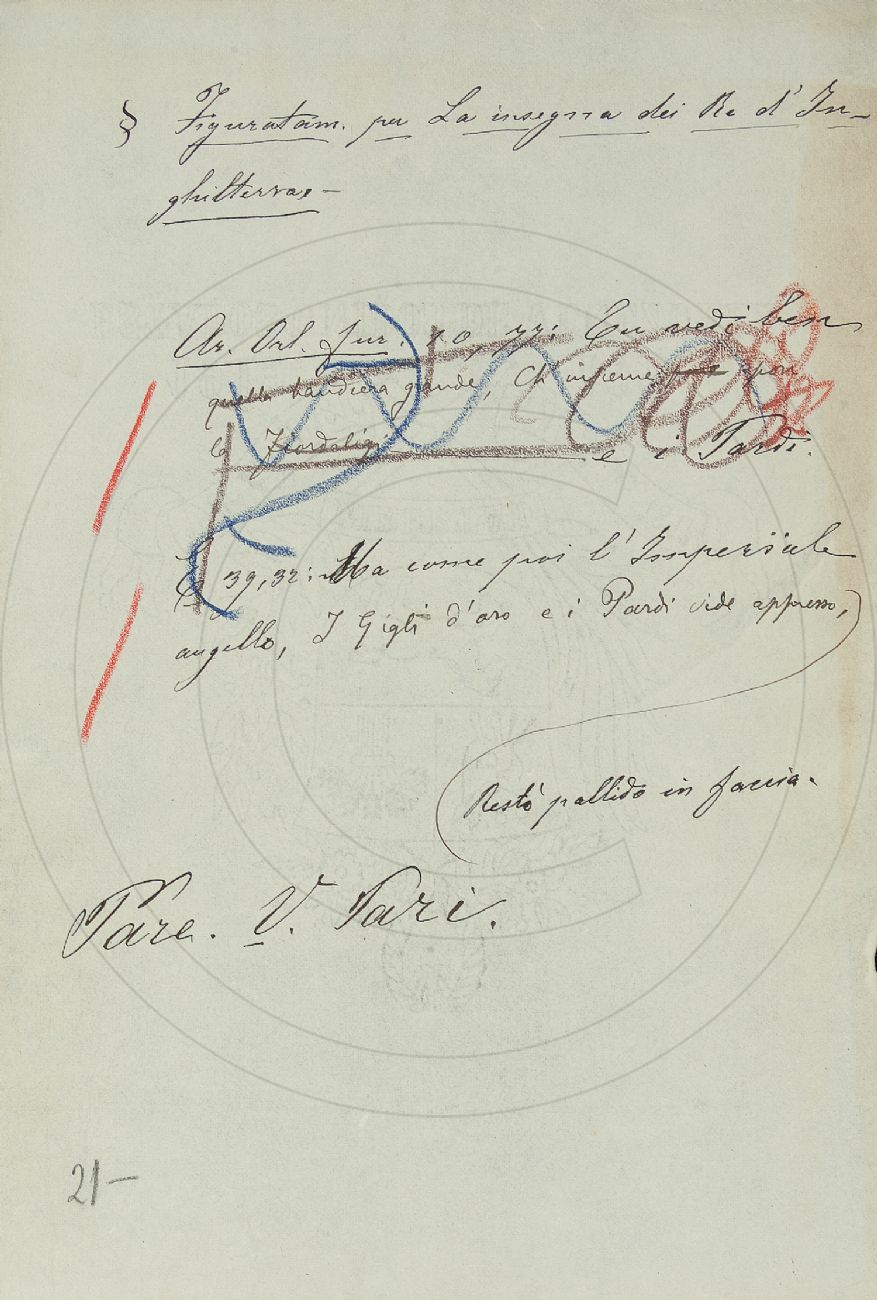 § Figuratam. per La insegna dei Re d'In-
ghilterra. –
Ar. Orl. Fur. 10, 77: Tu vedi ben
quella bandiera grande, Ch'insieme pon
la Fiordaligi e i Pardi.
E 39, 32: Ma come poi l'Imperïale
augello, I Gigli d'oro e i Pardi vide appresso,
Restò pallido in faccia.
Pare. V. Pari.
21 –